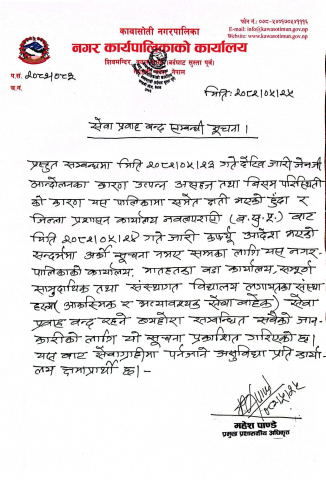 कावासोती नगरपालिका
नगर कार्यपालिकाको कार्यालय
फोन नं : ०७८-५४०७०२/१११६
E-mail: info@kawasotimun.gov.np
Website: www.kawasotimun.gov.np
प.सं. २०८२/०८३
च.नं.
मिति: २०८२/०५/२५
सेवा प्रवाह बन्द सम्बन्धी सूचना।
प्रस्तुत सम्बन्धमा मिति २०८२/०५/२३ गते देखि जारी जेनजी
आन्दोलनका कारण उत्पन्न असहज तथा विषम परिस्थिती
को कारण यस पालिकामा समेत क्षती भएको हुँदा र
जिल्ला प्रशासन कार्यालय नवलपरासी (ब.सु.पू.) बाट
मिति २०८२/०५/२४ गते जारी कर्फ्यू आदेश भएको
सन्दर्भमा अर्को सूचना नभए सम्मका लागि यस नगर-
पालिकाको कार्यालय, मातहतका वडा कार्यालय, सम्पूर्ण
सामुदायिक तथा संस्थागत विद्यालय लगायतका संस्था
हरुमा (आकस्मिक र अत्यावश्यक सेवा बाहेक) सेवा
प्रवाह बन्द रहने व्यहोरा सम्बन्धित सबैको जान-
कारीको लागि यो सूचना प्रकाशित गरिएको छ।
यस बाट सेवाग्राहीमा पर्नजाने असुविधा प्रति कार्या-
लय क्षमाप्रार्थी छ।-
२०८२/५/२५
महेश पाण्डे
प्रमुख प्रशासकीय अधिकृत